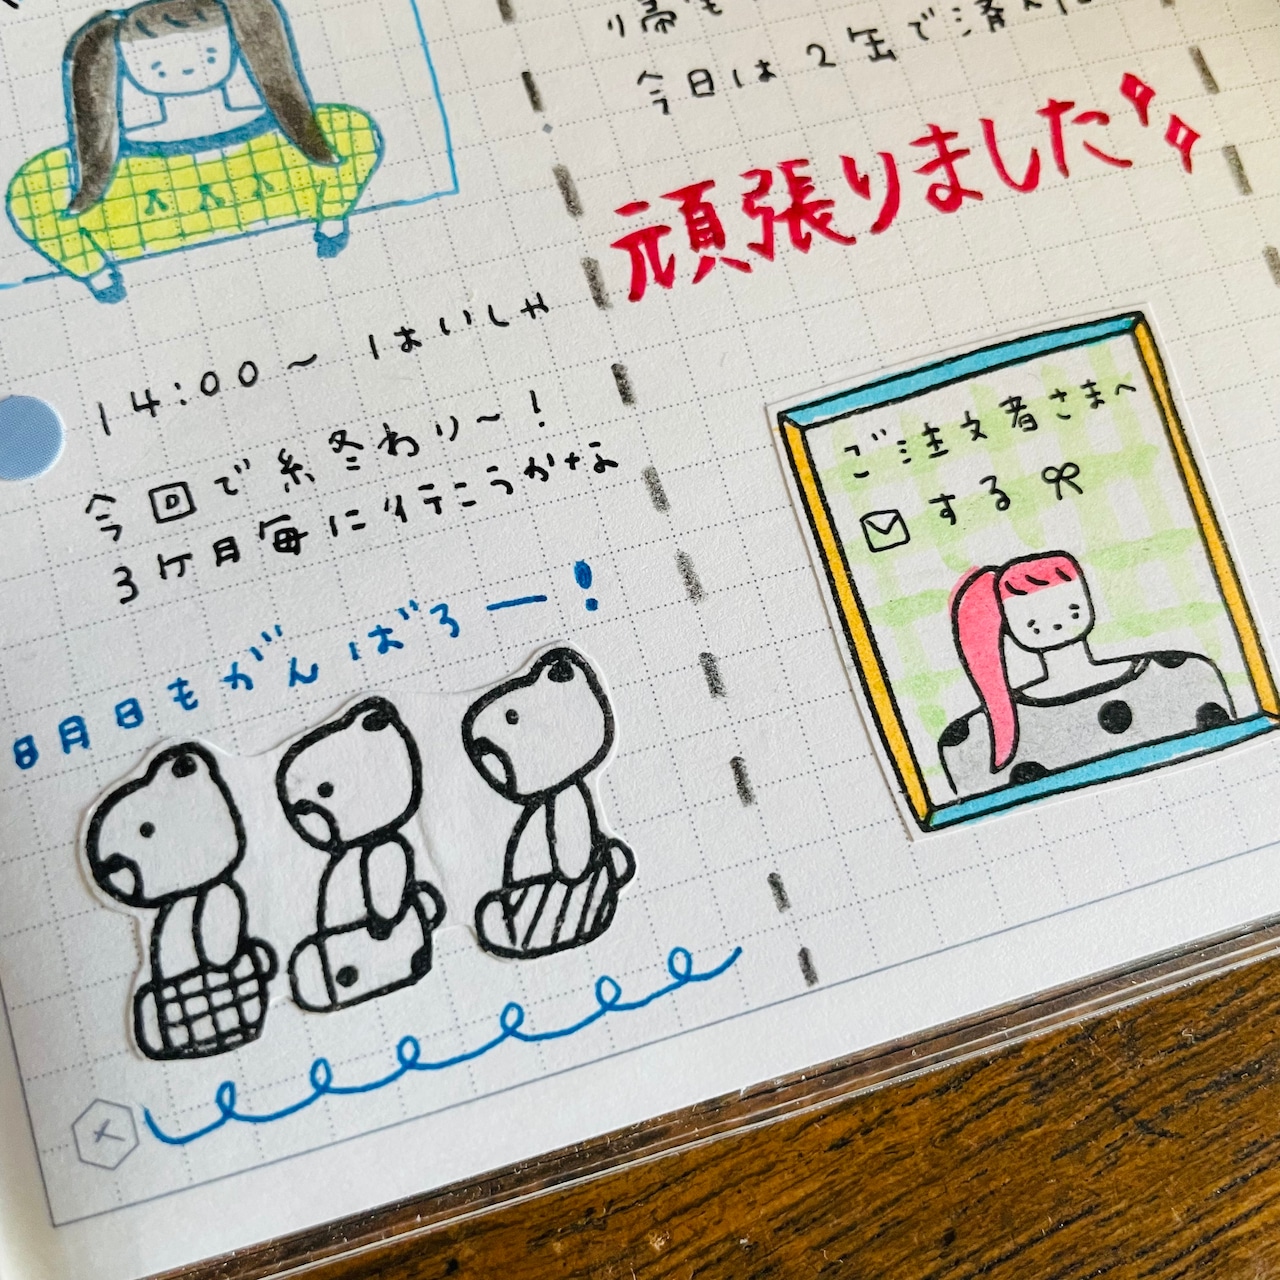 14:00〜 はいしゃ
今回で終わり〜!
3ケ月毎に行こうかな
8月日もがんばろー!
メ
り帰も
今日は2缶で済んだ
頑張りました
ご注文者さまへ
する